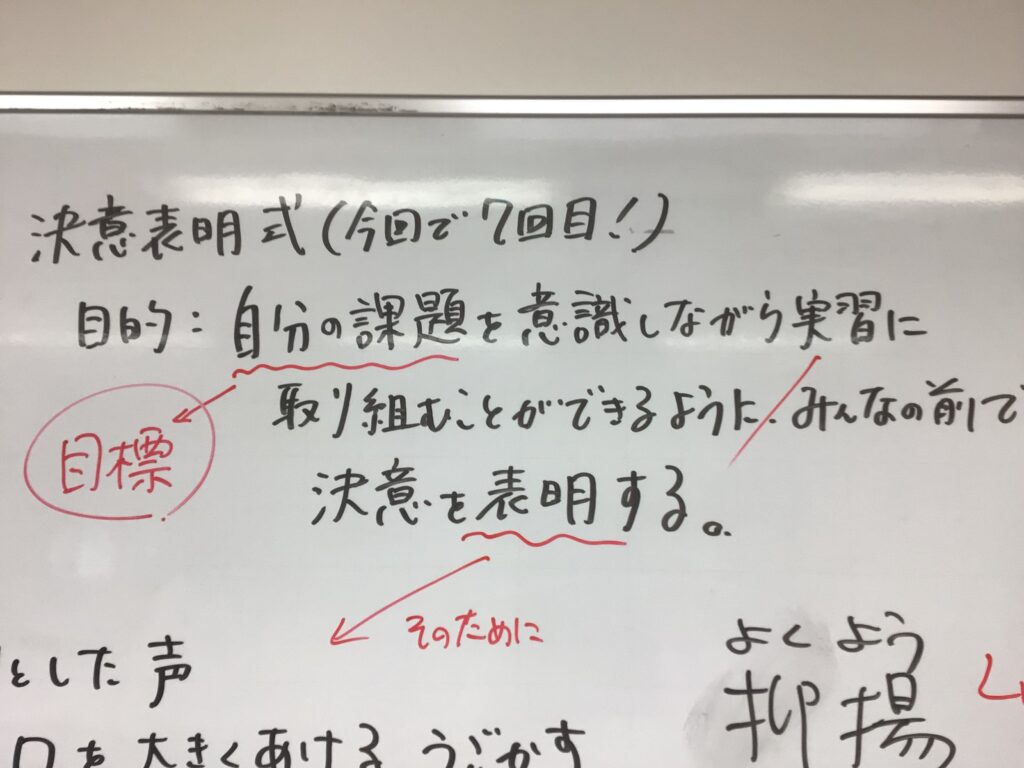 決意表明式(今回で7回目!)
目的:自分の課題を意識しながら実習に
取り組むことができるように、みんなの前で
目標
決意を表明する。
そのために
とした声
よくよう
抑揚
口を大きくあける うごかす